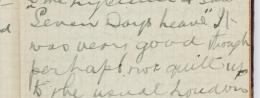 Seven Days Leave" It
was very good though
perhaps not quite up
to the usual London